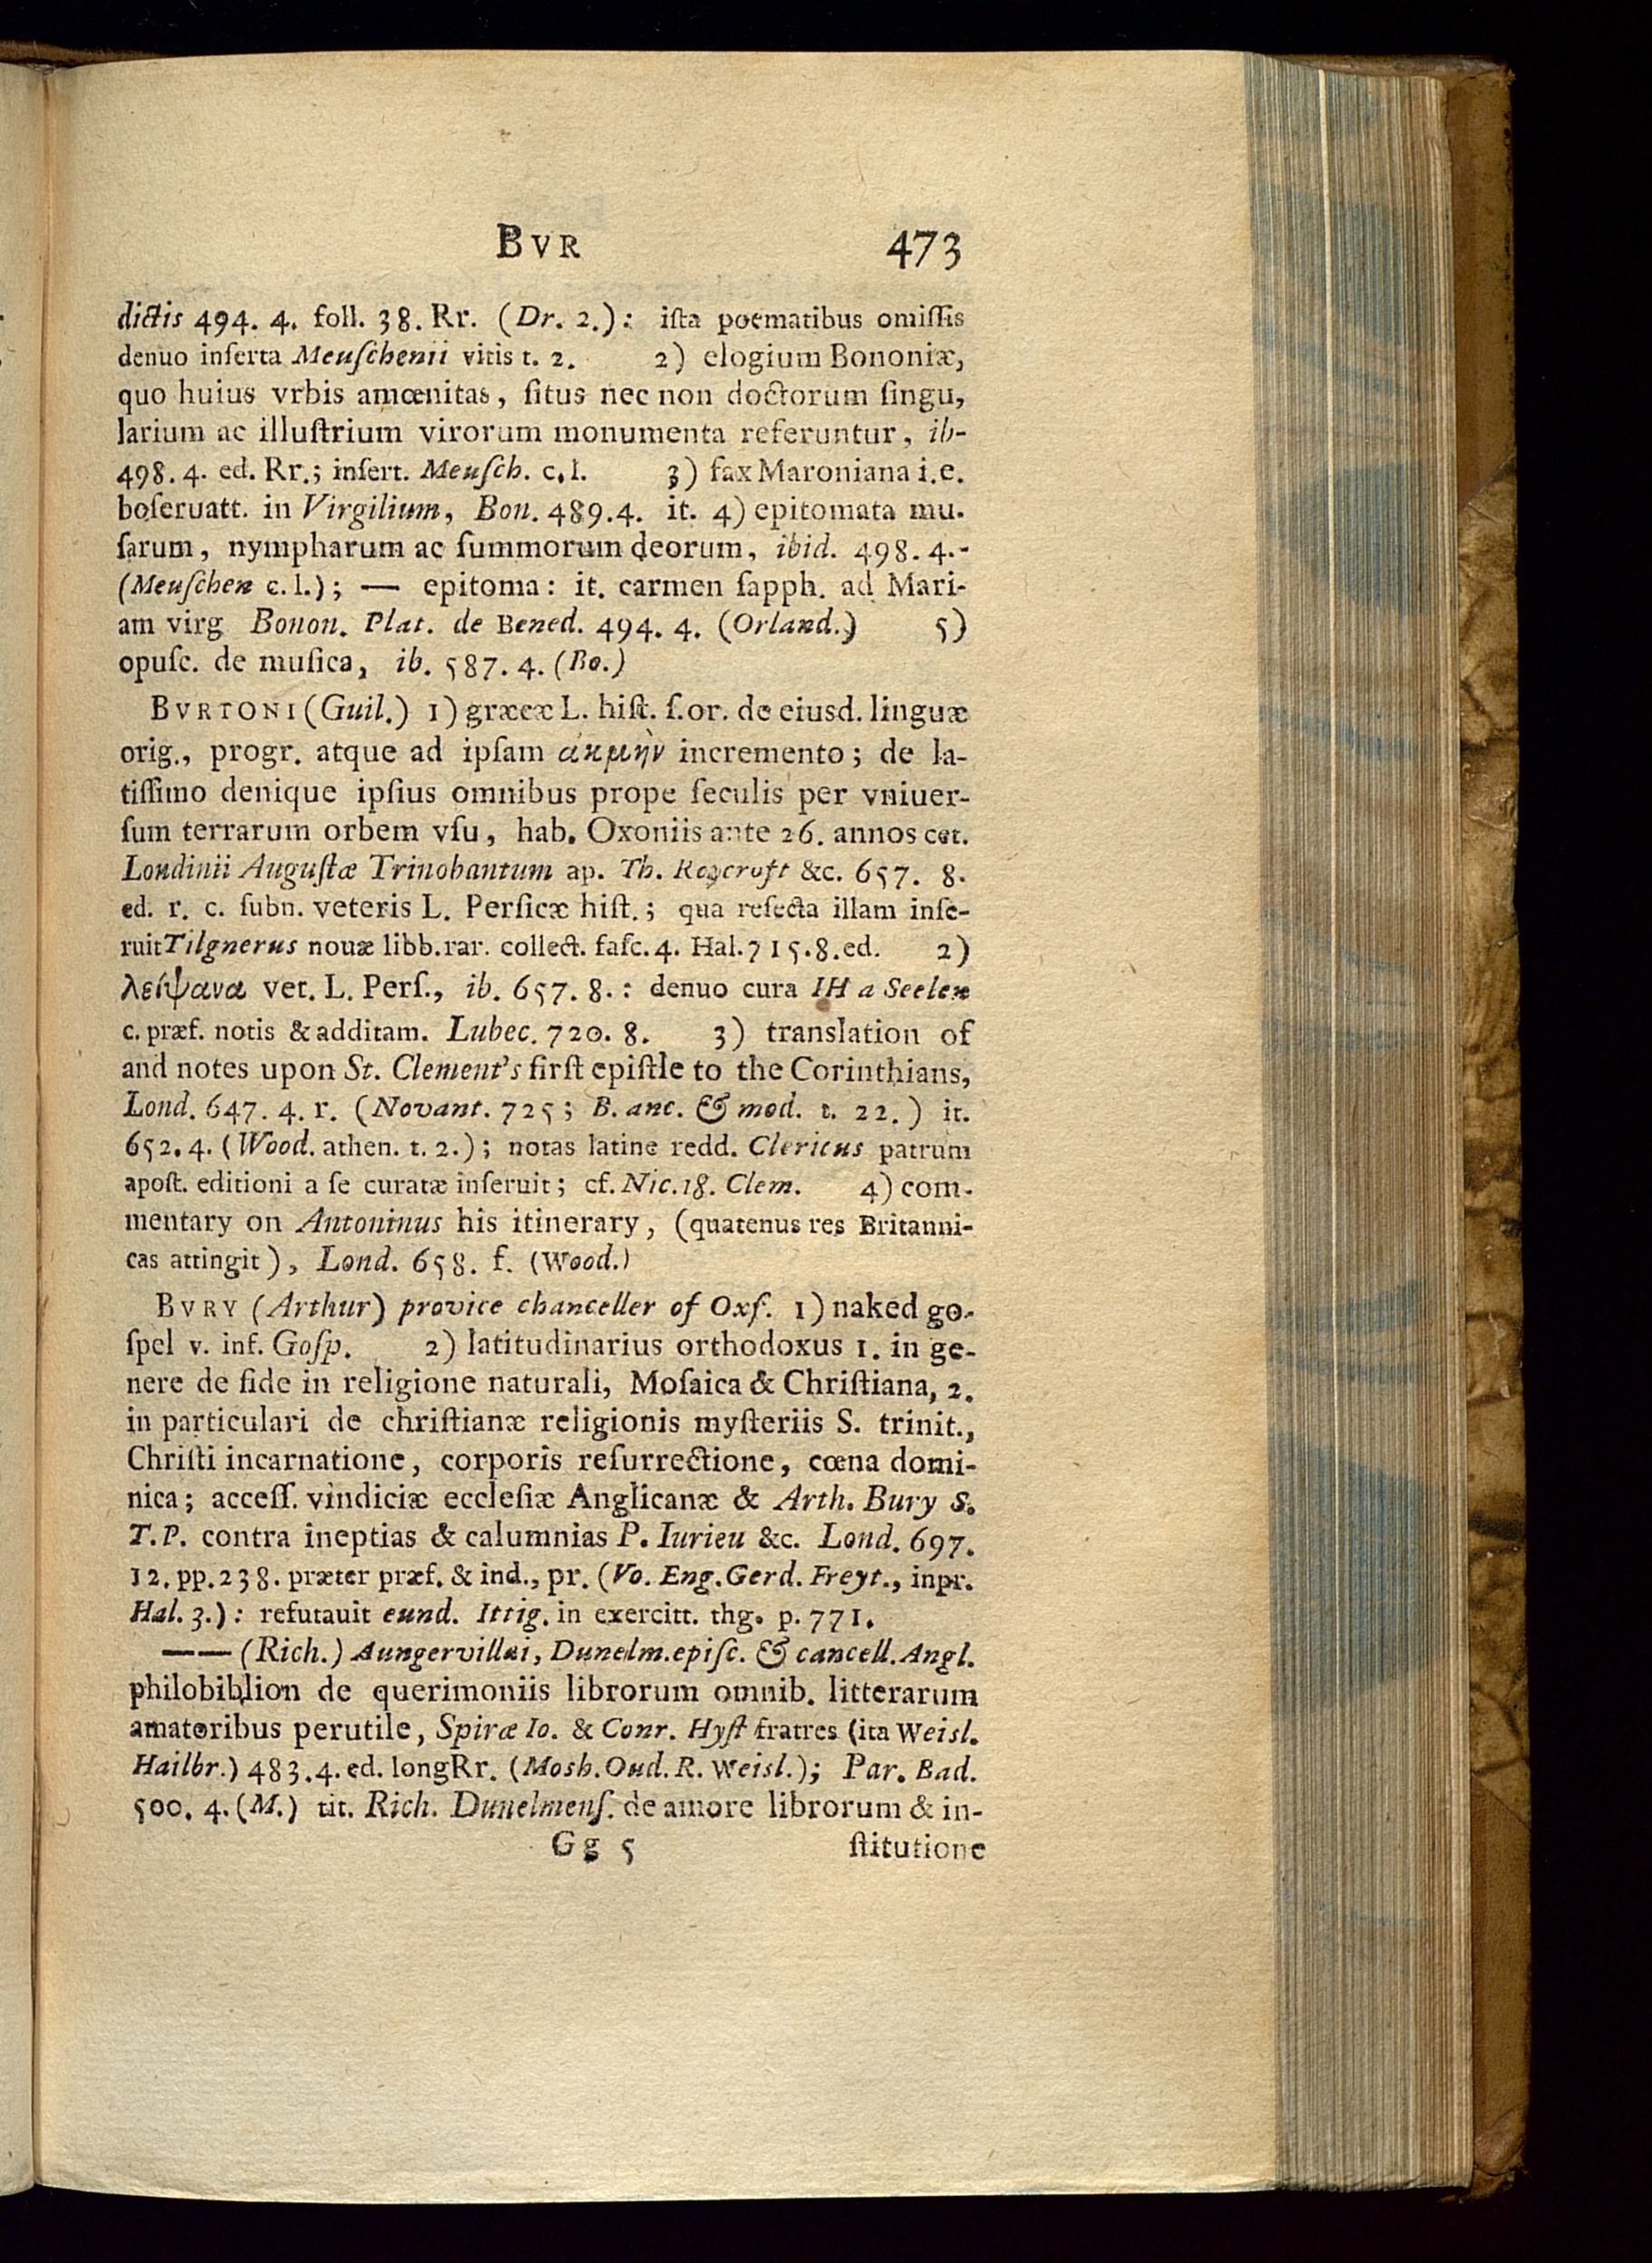 BVR 473
dictis 494. 4. foll. 38. Rr. (Dr. 2.): iſta poematibus omiſſis
denuo inſerta Meuſchenii vitis t. 2. 2) elogium Bononiæ,
quo huius vrbis amœnitas, ſitus nec non doctorum ſingu,
larium ac illuſtrium virorum monumenta referuntur, ib-
498. 4. ed. Rr.; inſert. Meuſch. c. l. 3) fax Maroniana i. e.
boſeruatt. in Virgilium, Bon. 489. 4. it. 4) epitomata mu.
ſarum, nympharum ac ſummorum deorum, ibid. 498. 4.-
(Meuſchen c. l.); — epitoma: it. carmen ſapph. ad Mari-
am virg Bonon. Plat. de Bened. 494. 4. (Orland.) 5)
opuſc. de muſica, ib. 587. 4. (Bo.)
BVRTONI (Guil.) 1) græcæ L. hiſt. ſ. or. de eiusd. linguæ
orig., progr. atque ad ipſam ἀκμὴν incremento; de la-
tiſſimo denique ipſius omnibus prope ſeculis per vniuer-
ſum terrarum orbem vſu, hab. Oxoniis ante 26. annos cet.
Londinii Auguſtæ Trinobantum ap. Th. Roycroft &c. 657. 8.
ed. r. c. ſubn. veteris L. Perſicæ hiſt.; qua reſecta illam inſe-
ruit Tilgnerus nouæ libb. rar. collect. faſc. 4. Hal. 715. 8. ed. 2)
λείψανα vet. L. Perſ., ib. 657. 8.: denuo cura IH a Seelen
c. præf. notis & additam. Lubec. 720. 8. 3) translation of
and notes upon St. Clement's firſt epiſtle to the Corinthians,
Lond. 647. 4. r. (Novant. 725; B. anc. & mod. t. 22.) it.
652. 4. (Wood. athen. t. 2.); notas latine redd. Clericus patrum
apoſt. editioni a ſe curatæ inſeruit; cf. Nic. 18. Clem. 4) com-
mentary on Antoninus his itinerary, (quatenus res Britanni-
cas attingit), Lond. 658. f. (Wood.)
BVRY (Arthur) provice chanceller of Oxf. 1) naked go-
ſpel v. inf. Goſp. 2) latitudinarius orthodoxus 1. in ge-
nere de fide in religione naturali, Moſaica & Chriſtiana, 2.
in particulari de chriſtianæ religionis myſteriis S. trinit.,
Chriſti incarnatione, corporis reſurrectione, cœna domi-
nica; acceſſ. vindiciæ eccleſiæ Anglicanæ & Arth. Bury S.
T. P. contra ineptias & calumnias P. Iurieu &c. Lond. 697.
12. pp. 238. præter præf. & ind., pr. (Vo. Eng. Gerd. Freyt., inpr.
Hal. 3.): refutauit eund. Ittig. in exercitt. thg. p. 771.
—— (Rich.) Aungervillei, Dunelm. epiſc. & cancell. Angl.
philobiblion de querimoniis librorum omnib. litterarum
amatoribus perutile, Spiræ Io. & Conr. Hyſt fratres (ita Weisl.
Hailbr.) 483. 4. ed. longRr. (Mosh. Oud. R. Weisl.); Par. Bad.
500. 4. (M.) tit. Rich. Dunelmenſ. de amore librorum & in-
Gg 5 ſtitutione